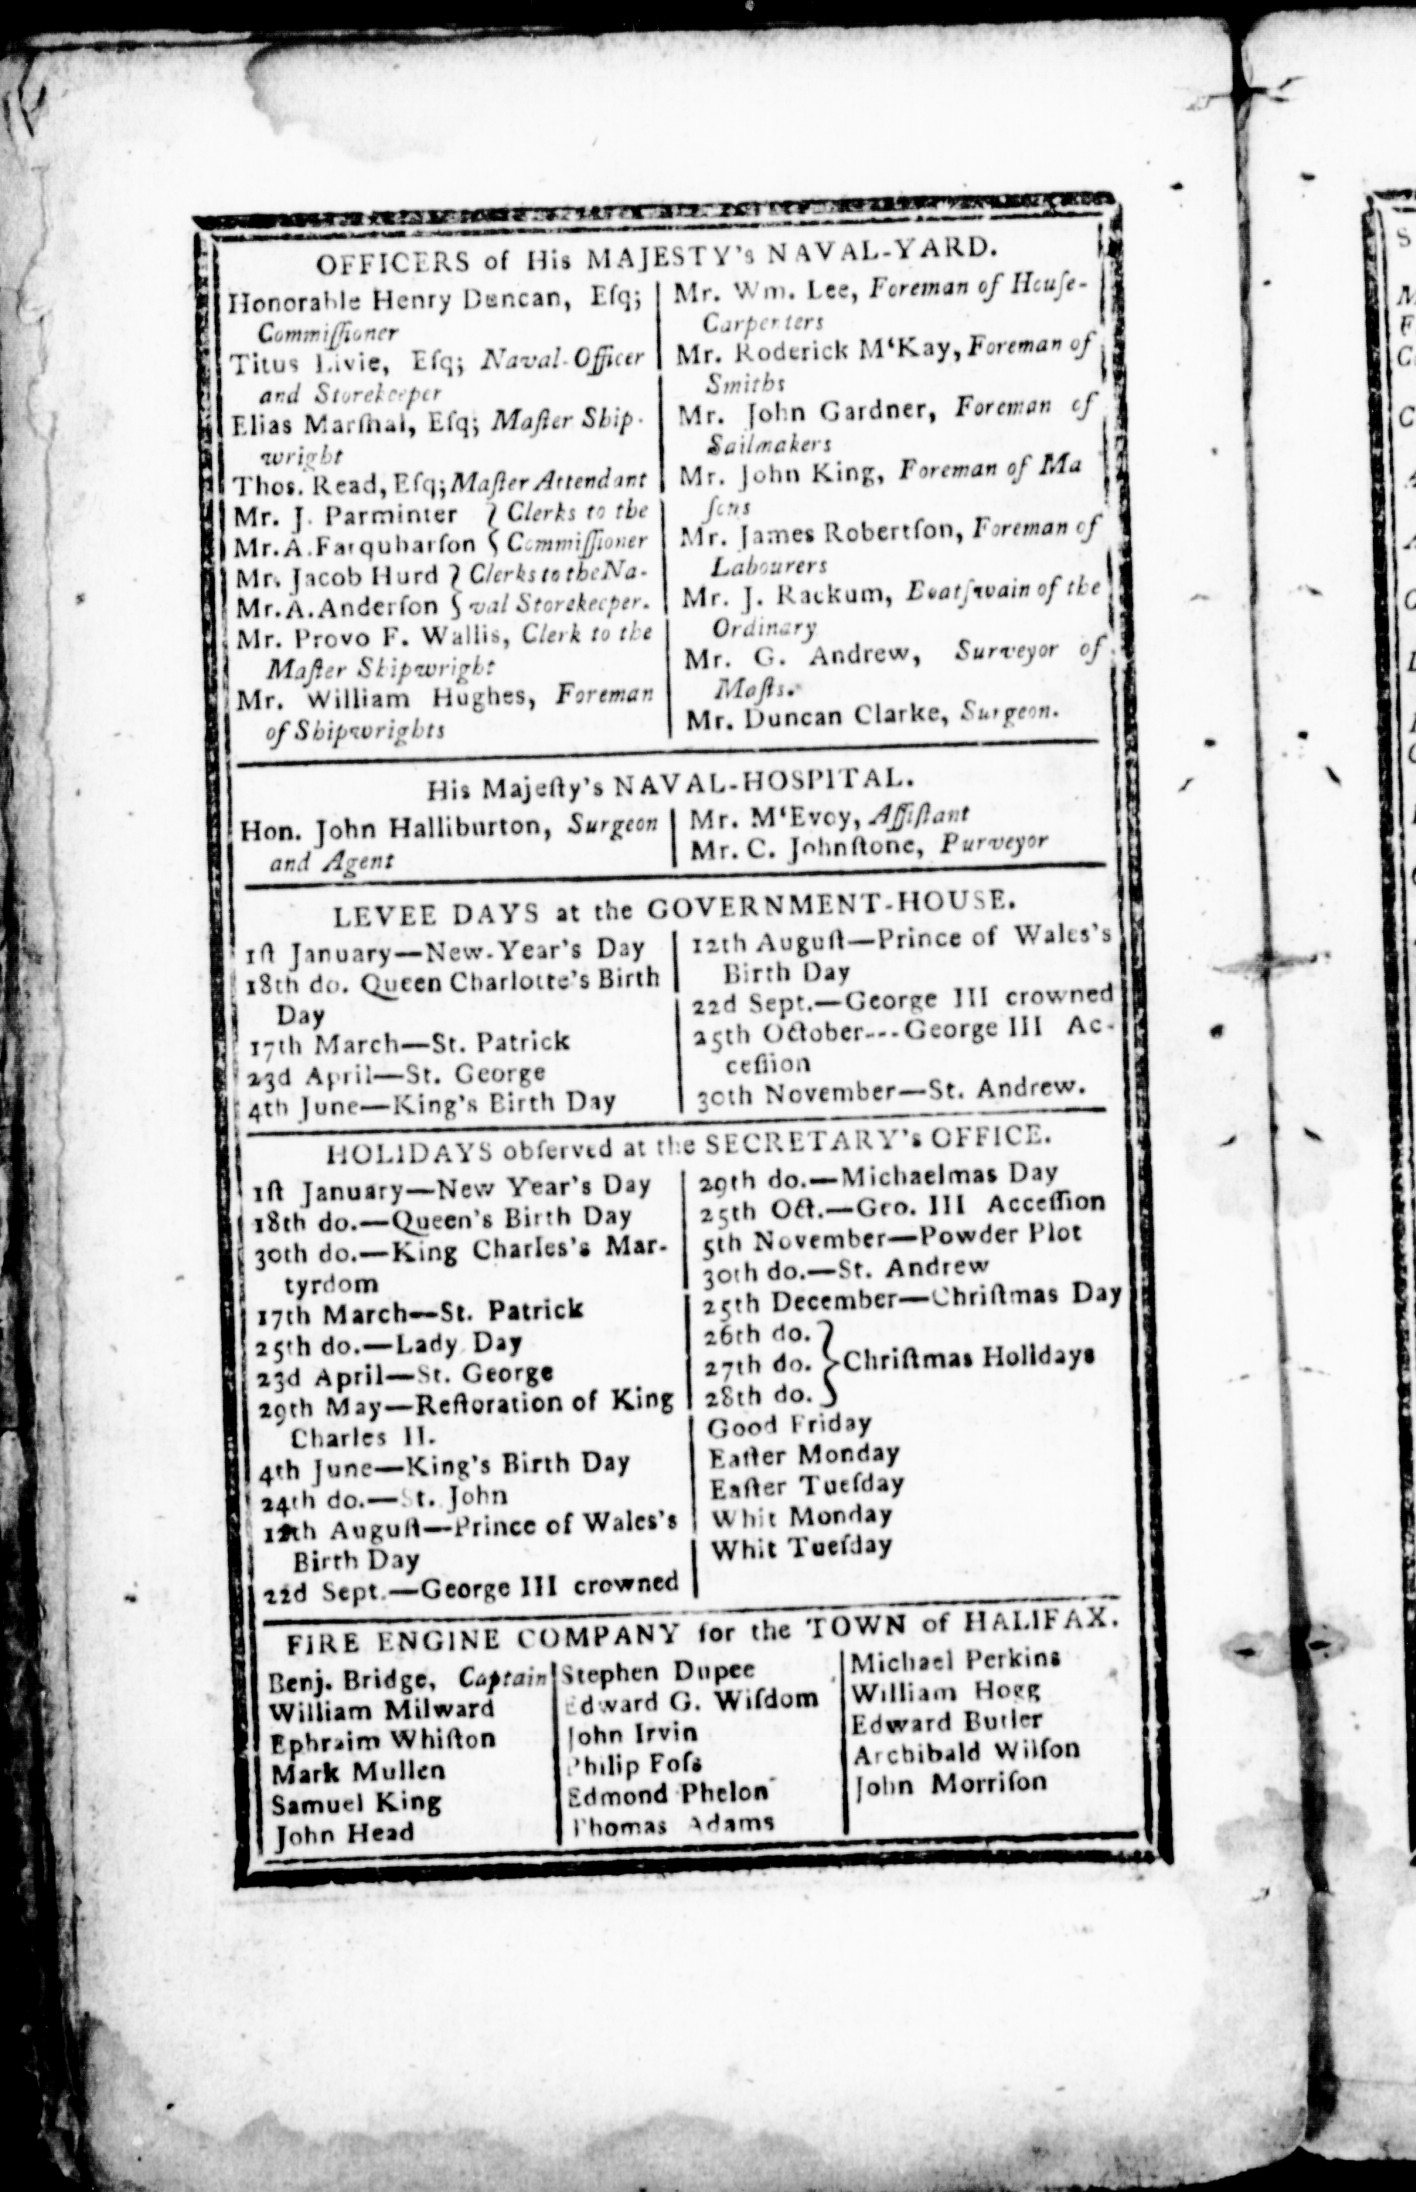 OFFICERS of His MAJESTY's NAVAL-YARD.
Honorable Henry Duncan, Eſq;
Commiſſioner
Titus Livie, Eſq; Naval-Officer
and Storekeeper
Elias Marſhal, Eſq; Maſter Ship-
wright
Thos. Read, Eſq; Maſter Attendant
Mr. J. Parminter } Clerks to the
Mr. A. Farquharſon } Commiſſioner
Mr. Jacob Hurd } Clerks to the Na-
Mr. A. Anderſon } val Storekeeper.
Mr. Provo F. Wallis, Clerk to the
Maſter Shipwright
Mr. William Hughes, Foreman
of Shipwrights
Mr. Wm. Lee, Foreman of Houſe-
Carpenters
Mr. Roderick M‘Kay, Foreman of
Smiths
Mr. John Gardner, Foreman of
Sailmakers
Mr. John King, Foreman of Ma
ſons
Mr. James Robertſon, Foreman of
Labourers
Mr. J. Rackum, Boatſwain of the
Ordinary
Mr. G. Andrew, Surveyor of
Maſts.
Mr. Duncan Clarke, Surgeon.
His Majeſty's NAVAL-HOSPITAL.
Hon. John Halliburton, Surgeon
and Agent
Mr. M‘Evoy, Aſſiſtant
Mr. C. Johnſtone, Purveyor
LEVEE DAYS at the GOVERNMENT-HOUSE.
1ſt January—New-Year's Day
18th do. Queen Charlotte's Birth
Day
17th March—St. Patrick
23d April—St. George
4th June—King's Birth Day
12th Auguſt—Prince of Wales's
Birth Day
22d Sept.—George III crowned
25th October---George III Ac-
ceſſion
30th November—St. Andrew.
HOLIDAYS obſerved at the SECRETARY's OFFICE.
1ſt January—New Year's Day
18th do.—Queen's Birth Day
30th do.—King Charles's Mar-
tyrdom
17th March—St. Patrick
25th do.—Lady Day
23d April—St. George
29th May—Reſtoration of King
Charles II.
4th June—King's Birth Day
24th do.—St. John
12th Auguſt—Prince of Wales's
Birth Day
22d Sept.—George III crowned
29th do.—Michaelmas Day
25th Oct.—Geo. III Acceſſion
5th November—Powder Plot
30th do.—St. Andrew
25th December—Chriſtmas Day
26th do. }
27th do. } Chriſtmas Holidays
28th do. }
Good Friday
Eaſter Monday
Eaſter Tueſday
Whit Monday
Whit Tueſday
FIRE ENGINE COMPANY for the TOWN of HALIFAX.
Benj. Bridge, Captain
William Milward
Ephraim Whiſton
Mark Mullen
Samuel King
John Head
Stephen Dupee
Edward G. Wiſdom
John Irvin
Philip Foſs
Edmond Phelon
Thomas Adams
Michael Perkins
William Hogg
Edward Butler
Archibald Wilſon
John Morriſon